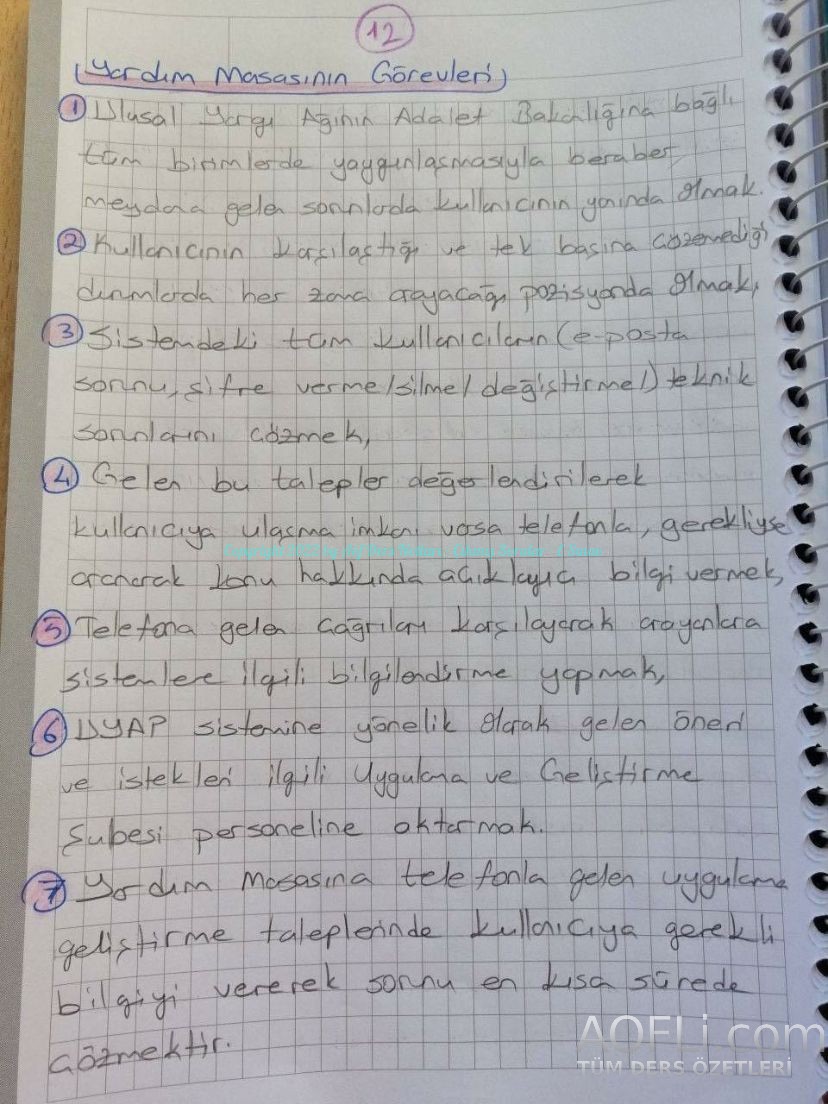 12
(Yardım Masasının Görevleri)
1 Ulusal Yargı Ağının Adalet Bakanlığına bağlı
tüm birimlerde yaygınlaşmasıyla beraber
meydana gelen sorunlarda kullanıcının yanında olmak.
2 Kullanıcının karşılaştığı ve tek başına çözemediği
durumlarda her zaman arayacağı pozisyonda olmak,
3 Sistemdeki tüm kullanıcıların (e-posta
sorunu, şifre verme/silme/değiştirme/) teknik
sorunlarını çözmek,
4 Gelen bu talepler değerlendirilerek
kullanıcıya ulaşma imkanı varsa telefonla, gerekliyse
aranarak konu hakkında açıklayıcı bilgi vermek,
5 Telefona gelen çağrıları karşılayarak arayanlara
sistemlere ilgili bilgilendirme yapmak,
6 UYAP sistemine yönelik olarak gelen öneri
ve istekleri ilgili Uygulama ve Geliştirme
Şubesi personeline aktarmak.
7 Yardım Masasına telefonla gelen uygulama
geliştirme taleplerinde kullanıcıya gerekli
bilgiyi vererek sorunu en kısa sürede
çözmektir.
AOFLi.com
TÜM DERS ÖZETLERİ